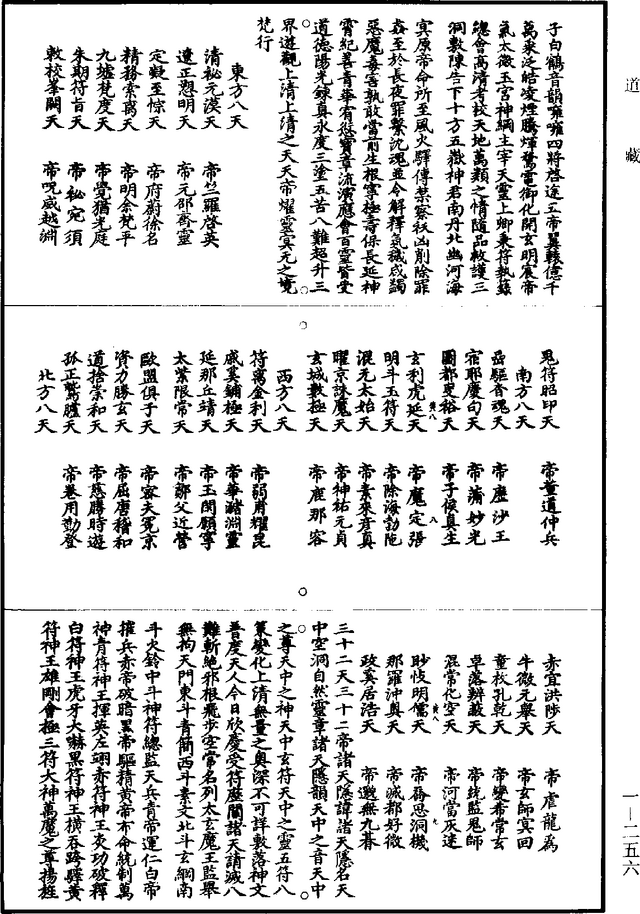 道藏
子白鶴音韻嘹嘹四將啓途五帝翼轅億千
萬乘泛皓凌煙騰煇驚電御化開玄明宸帝
氣太微玉宮神綱主宰天靈上卿秉符執籙
總會高清考校天地萬類之情隨品救護三
洞敷陳告下十方五嶽神君南丹北幽河海
冥原帝命所至風火驛傳禁察祅凶削除罪
姦至於長夜罪繫沈魂並令解釋氣穢咸蠲
惡魔毒害孰敢當前生根寧極壽保長延神
霄紀善青華宥愆寶章流演應會百靈皆受
道德陽光鍊真永度三塗五苦八難超升三
界遊觀上清上清之天天帝耀靈冥元之境
梵行
東方八天
清秘元漠天 帝竺羅啓英
遼正愬明天 帝元邵齋靈
定凝至悰天 帝府蔚徐名
精務索禹天 帝明会梵平
九墟梵度天 帝覺猶光庭
朱期符旨天 帝秘宛須
敕校峯闕天 帝呪威越淵
鬼符昭印天 帝董道仲兵
南方八天
岳驅音魂天 帝塵沙王
宿耶慶句天 帝蒲妙光
圖都叟裕天 帝子候真生
玄利虎延天 帝魔定張
明斗玉符天 帝除海勃陁
混元太始天 帝素來彦真
曜京誅魔天 帝神祐元貞
玄城數極天 帝鹿那容
西方八天
符寓金利天 帝弱肩耀昆
戚奚鋪極天 帝華豬淵靈
延那丘靖天 帝王閉願寧
太紫限常天 帝鄒父近營
歐盟俱子天 帝容夫冕京
齊力勝玄天 帝屈唐稽和
道捨崇和天 帝慈勝時遊
孤正驚膿天 帝卷用勤登
北方八天
赤宜洪陟天 帝虐龍為
牛微元舉天 帝玄師冥回
童枝孔乾天 帝變希常玄
卓落辨薮天 帝統監鬼師
混當化空天 帝河當灰迷
眇忮明儒天 帝番思洞機
那羅沖奥天 帝滅都好微
政奚居浩天 帝邀無九春
三十二天三十二帝諸天隱諱諸天隱名天
中空洞自然靈章諸天隱韻天中之音天中
之尊天中之神天中玄符天中之靈五符八
策變化上清無量之奥深不可詳敷落神文
普度天人今日欣慶受符歷關諸天請滅八
難斬絶邪根飛步空常名列太玄魔王監舉
無拘天門東斗青簡西斗素文北斗玄綱南
斗火鈴中斗神符總監天兵青帝運仁白帝
摧兵赤帝破暗黑帝驅精黄帝布命統制萬
神青符神王揮英左翊赤符神王炎功破釋
白符神王虎牙大嚇黑符神王横吞跨驛黄
符神王雄剛會極三符大神萬魔之尊揚旌
一—二五六